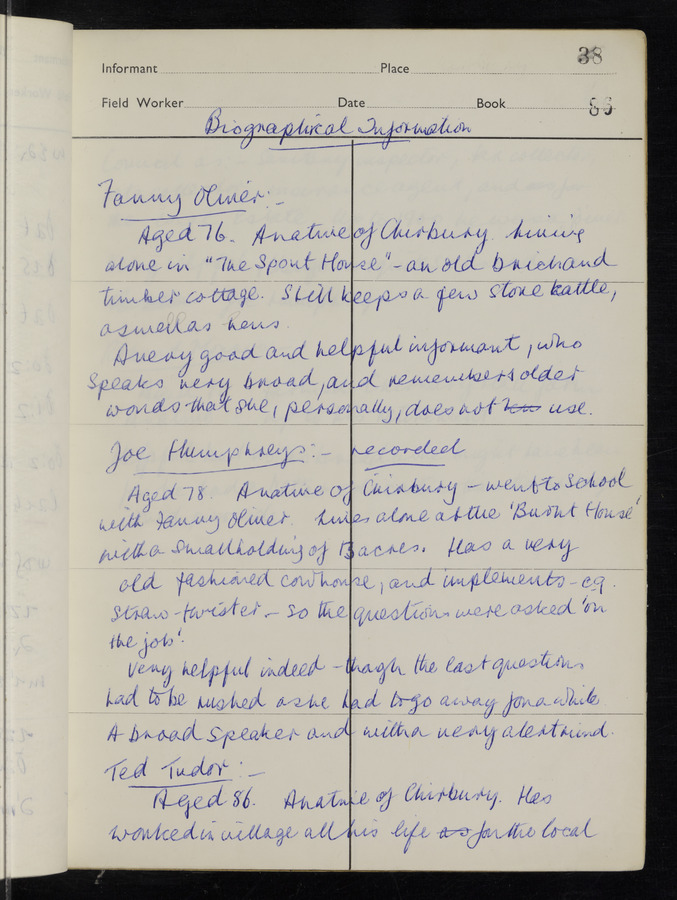 38
Informant Place
Field Worker Date Book 86
Biographical Information
Fanny Oliver:-
Aged 76. A native of Chirbury. Living
alone in "The Spout House" - an old brick and
timber cottage. Still keeps a few store cattle,
as well as hens.
A very good and helpful informant, who
speaks very broad, and remembers older
words that she, personally, does not use.
Joe Humphreys:- recorded
Aged 78. A native of Chirbury - went to school
with Fanny Oliver. Lives alone at the 'Burnt House'
with a smallholding of 13 acres. Has a very
old fashioned cowhouse, and implements - eg.
straw-twister - so the questions were asked 'on
the job'.
Very helpful indeed - though the last questions
had to be rushed as he had to go away for a while.
A broad speaker and with a very alert mind.
Ted Tudor:-
Aged 86. A native of Chirbury. Has
worked in village all his life as for the local